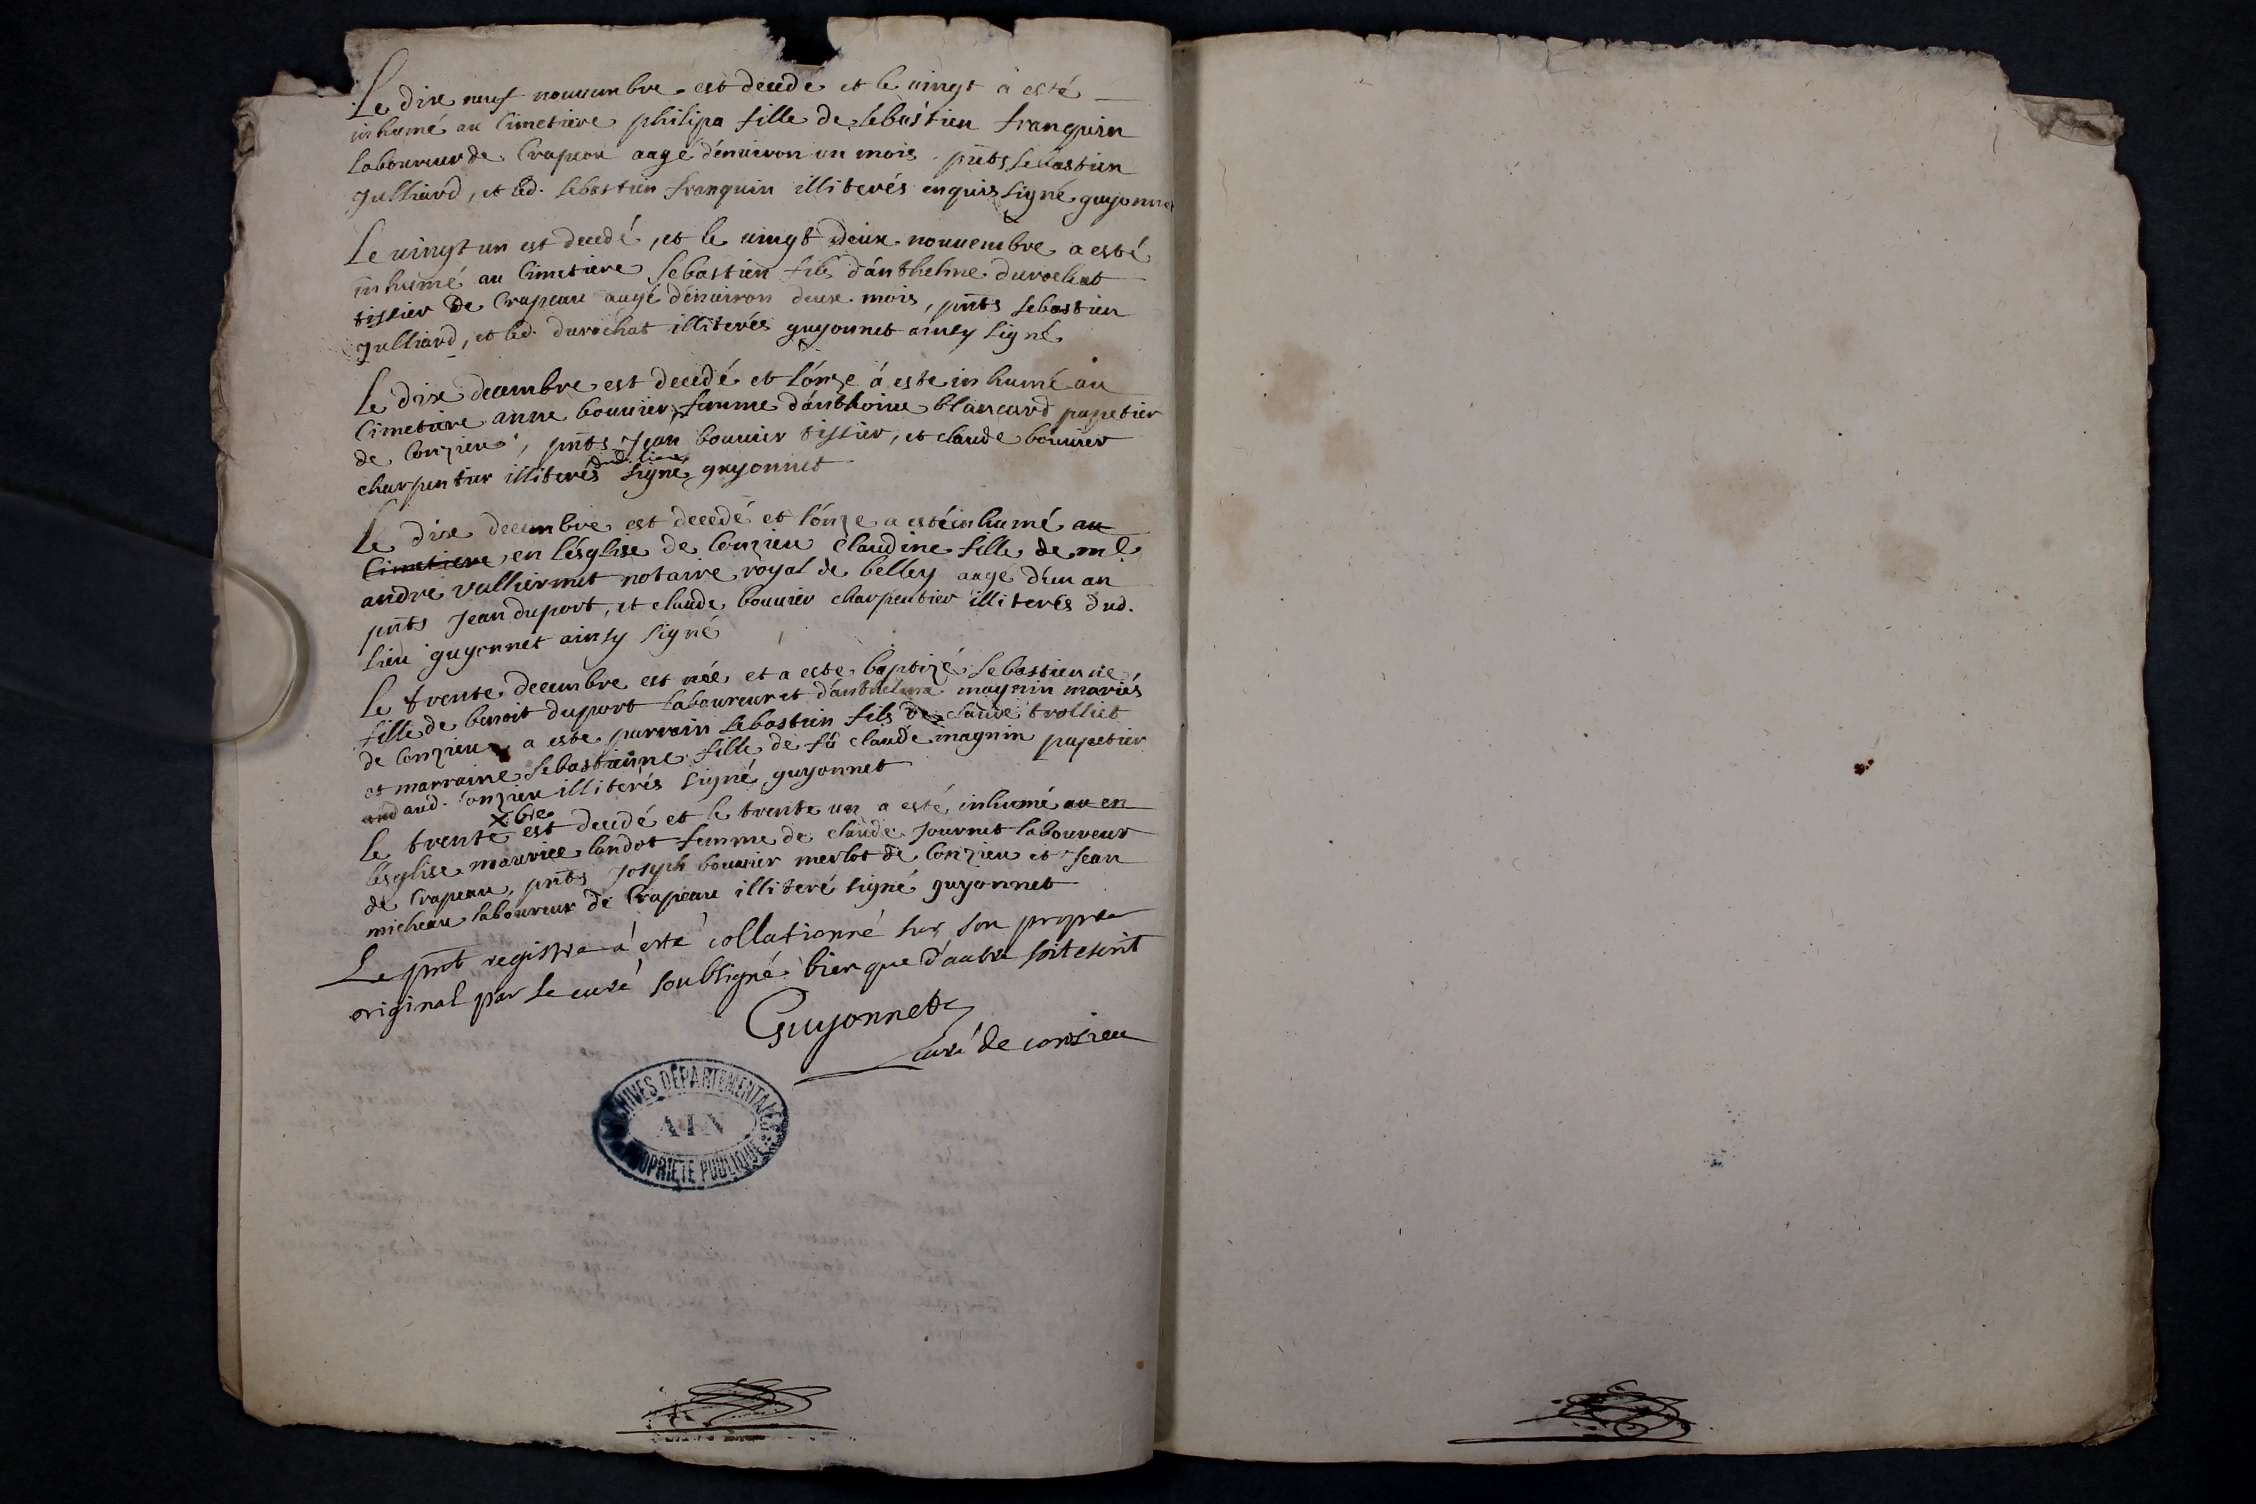 Le dix neuf nouuembre est decedé et le uingt a esté
inhumé au Cimetiere philipa fille de sebastien franquin
laboureur de Crapeou aagé d'enuiron un mois pnts sebastien
Julliard, et led. sebastien franquin illiterés enquis signé guyonnet
Le uingt un est decedé, et le uingt deux nouuembre a esté
inhumé au Cimetiere sebastien fils d'anthelme durochat
tissier de Crapeau aagé d'enuiron deux mois, pnts sebastien
Julliard, et led. durochat illiterés guyonnet ainsy signé
Le dix decembre est decedé et l'onze á esté inhumé au
Cimetiere anne bouuier femme d'anthoine blancard papetier
de Conzieu, pnts Jean bouuier tissier, et claude bouuier
charpentier illiterés dud. lieu signé guyonnet
Le dix decembre est decedé et l'onze a esté inhumé au
Cimetiere en l'église de Conzieu Claudine fille de me
andré vulliermet notaire royal de belley aagé d'un an
pnts Jean duport, et claude bouuier charpentier illiterés dud.
lieu guyonnet ainsy signé
Le trente decembre est née et a esté baptizé sebastienne
fille de benoit duport laboureur et d'anthelma magnin mariés
de Conzieu a esté parrain sebastien fils de claude trolliet
et marraine sebastienne fille de fû claude magnin papetier
aud. Conzieu illiterés signé guyonnet
Le trente xbre est decedé et le trente un a esté inhumé au en
l'église maurice landot femme de claude Journet laboureur
de Crapeau, pnts Joseph bouuier merlot de Conzieu et Jean
micheau laboureur de Crapeau illiteré signé guyonnet
Le pnt registre a' esté collationné sur son propre
original par le curé soubsigné bien que d'autre soit escrit
Guyonnet
curé de conzieu
ARCHIVES DÉPARTEMENTALES
AIN
PROPRIÉTÉ PUBLIQUE